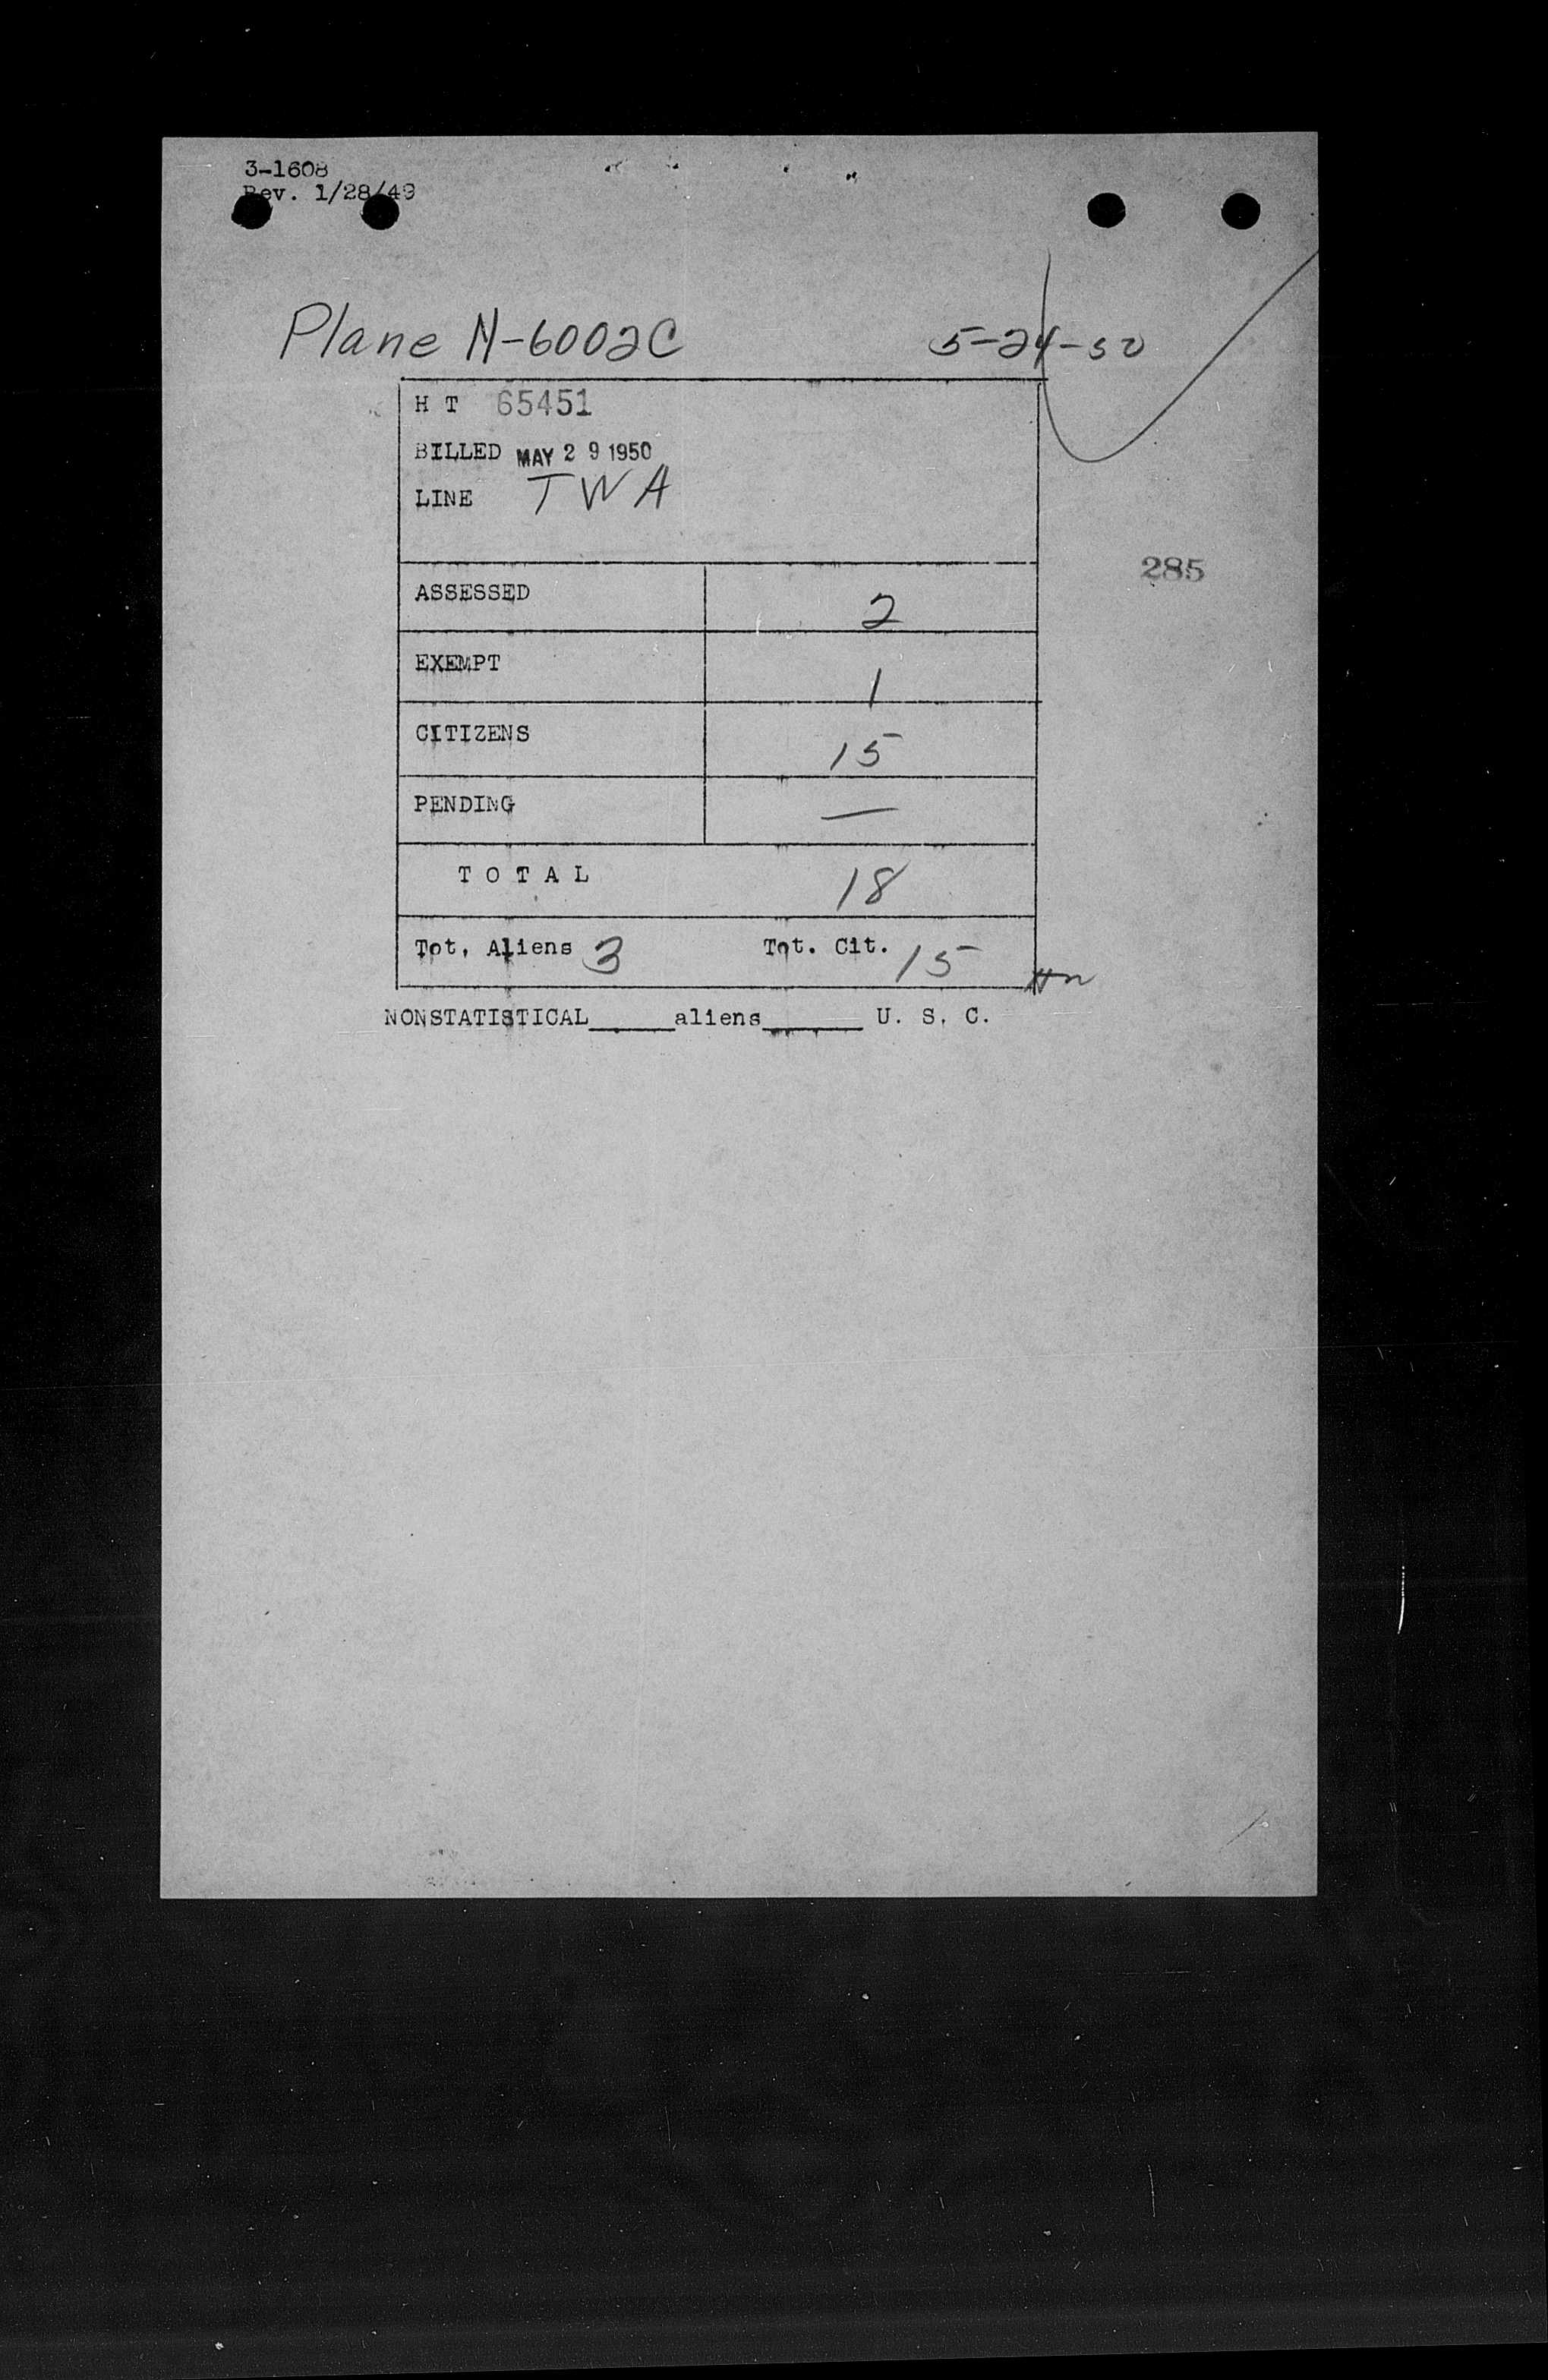 3-1608
Rev. 1/28/49
Plane N-6002C 5-24-50
H T 65451
BILLED MAY 29 1950
LINE TWA
285
ASSESSED 2
EXEMPT 1
CITIZENS 15
PENDING —
T O T A L 18
Tot. Aliens 3 Tot. Cit. 15
NONSTATISTICAL_____aliens______ U. S. C.